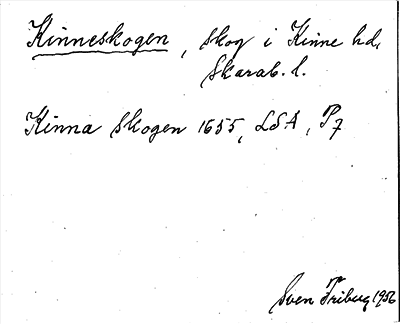 Kinneskogen, skog i Kinne hd,
Skarab. l.
Kinna Skogen 1655, LSA, P7
Sven Friberg 1956